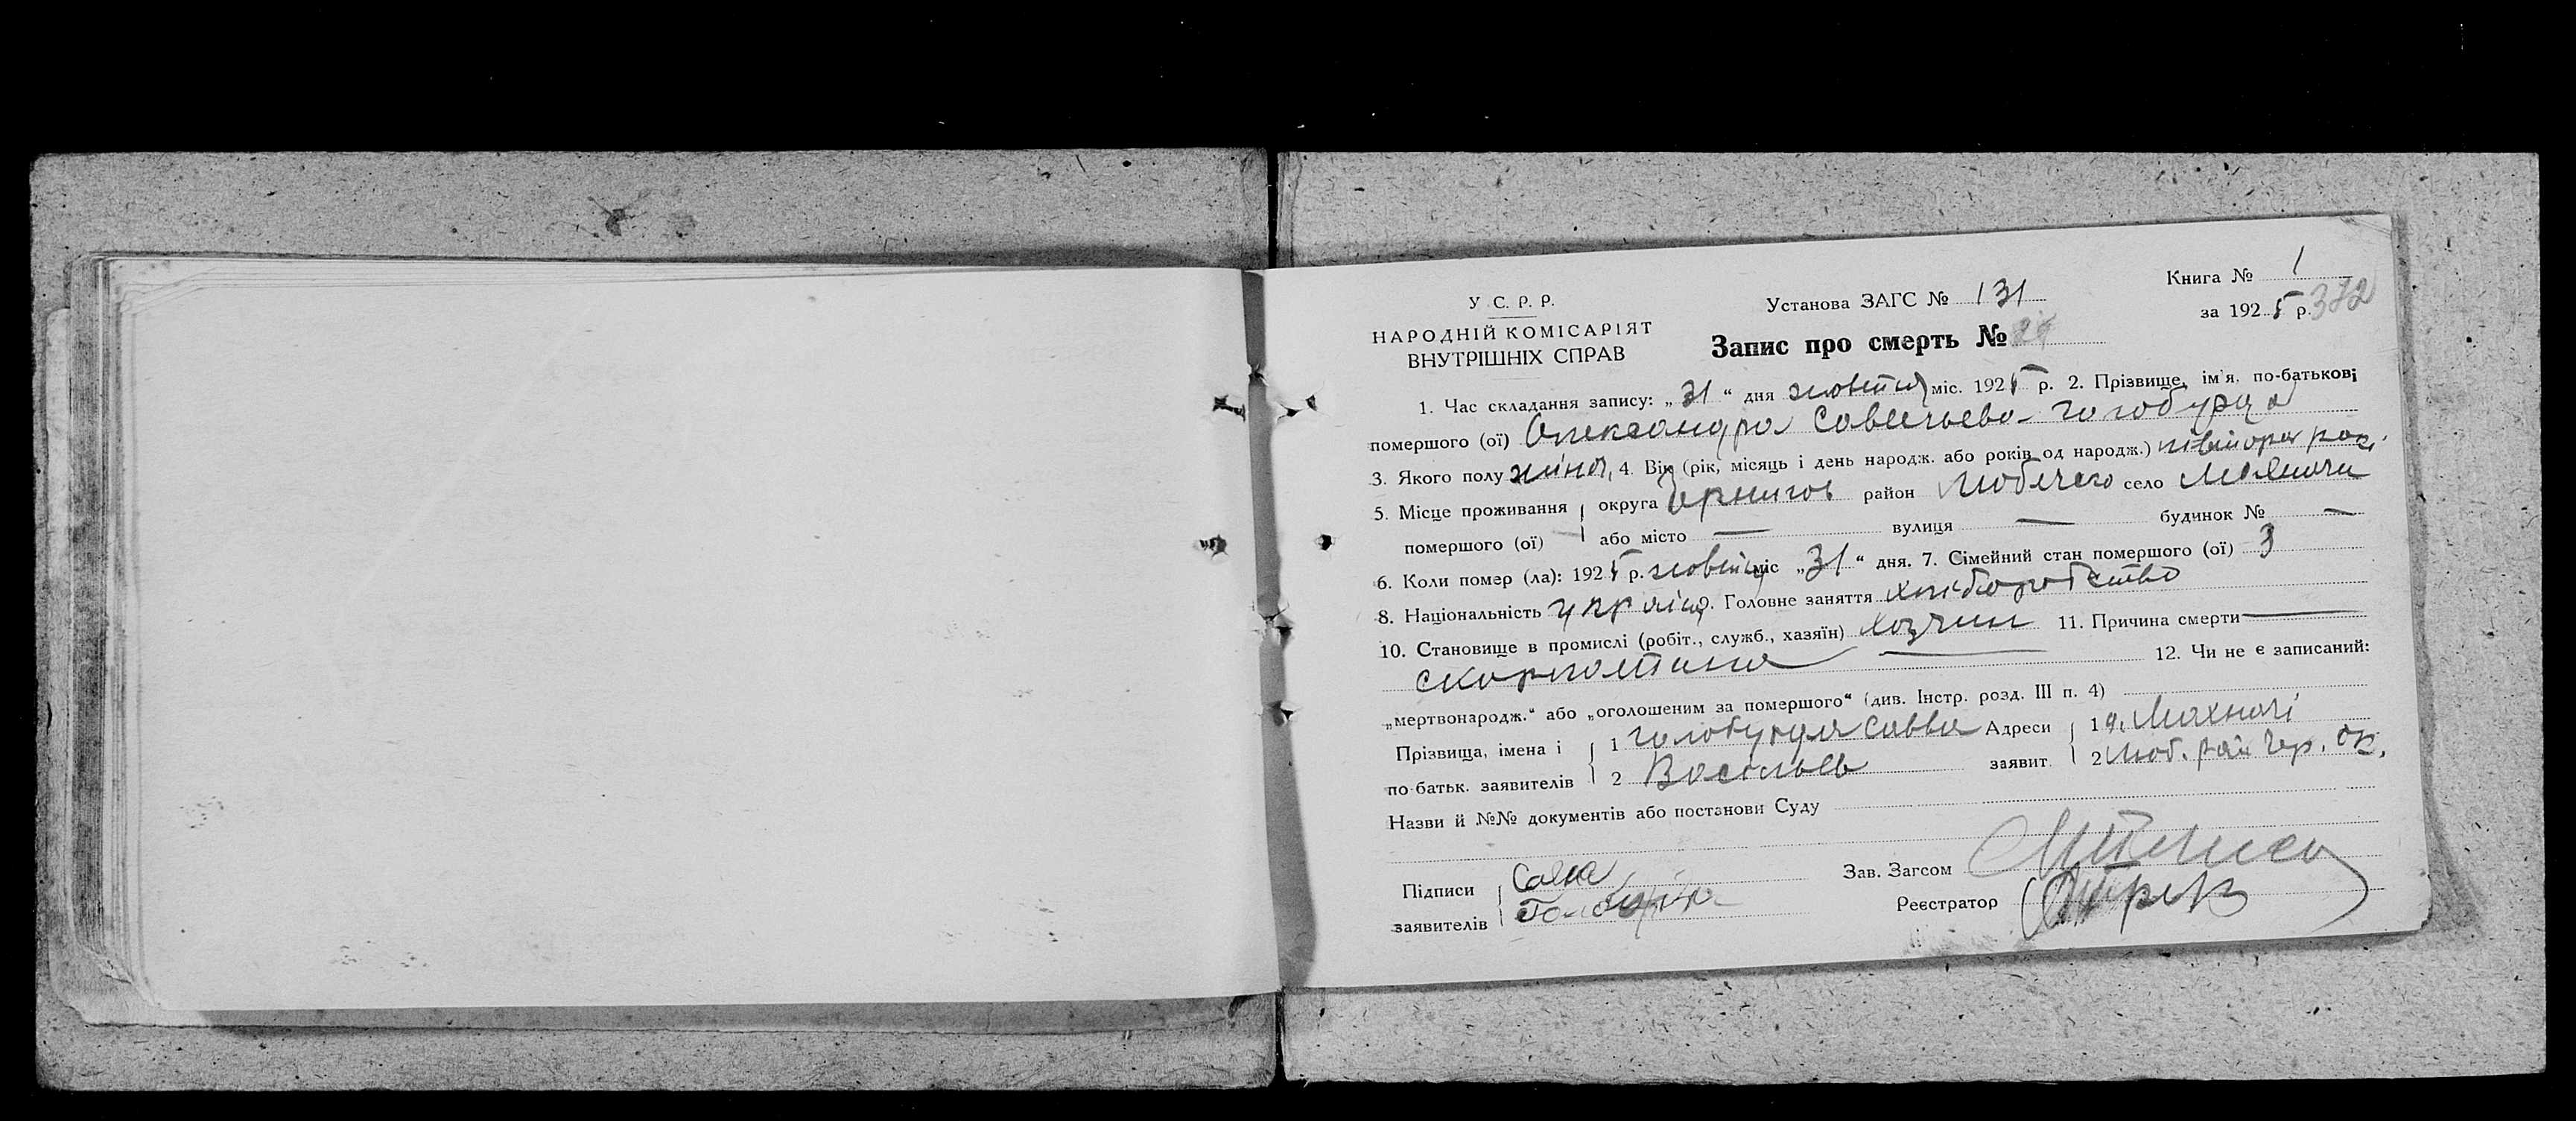 У С. Р. Р.
НАРОДНІЙ КОМІСАРІЯТ
ВНУТРІШНІХ СПРАВ
Установа ЗАГС № 131
Книга № 1
за 1925 р. 372
Запис про смерть №
1. Час складання запису: „31“ дня жовтня міс. 1925 р. 2. Прізвище, ім'я, по-батькові
помершого (ої) Олександра Савельева Голобурда
3. Якого полу жіноч, 4. Вік (рік, місяць і день народж. або років од народж.) півтора рок.
5. Місце проживання округа Чернигов район Любечего село
помершого (ої) або місто — вулиця — будинок № —
6. Коли помер (ла): 1925 р. жовтня міс „31“ дня. 7. Сімейний стан помершого (ої) 3
8. Національність україн 9. Головне заняття хліборобство
10. Становище в промислі (робіт., служб., хазяїн) 11. Причина смерти —
скорлотина 12. Чи не є записаний:
„мертвонародж.“ або „оголошеним за помершого“ (див. Інстр. розд. III п. 4)
Прізвища, імена і 1 Голобурда Савва Адреси 1 Махначі
по-батьк. заявителів 2 Васільев заявит. 2 Люб. рай Чер. ок.
Назви й №№ документів або постанови Суду
Підписи Сава Зав. Загсом
заявителів Голобурда Реєстратор